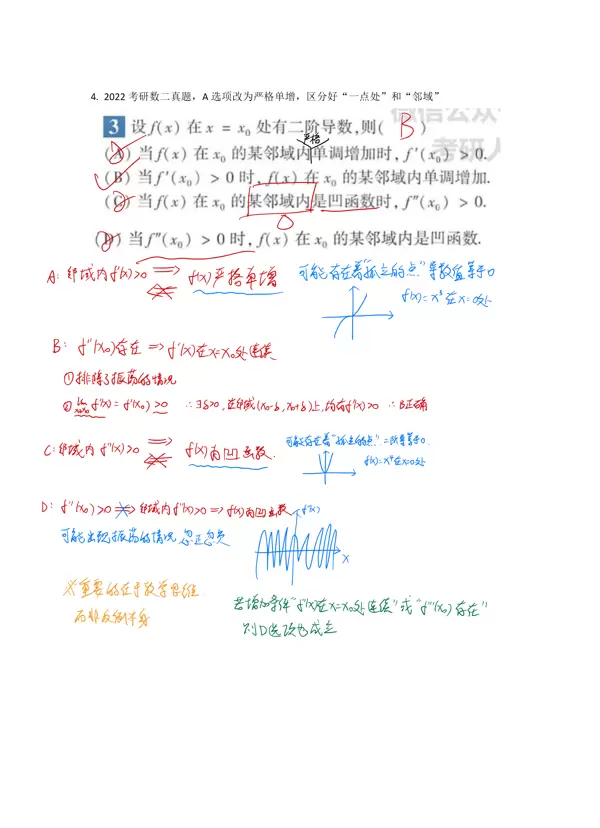 4. 2022 考研数二真题，A 选项改为严格单增，区分好“一点处”和“邻域”
微信公众
考研人
3 设 f(x) 在 x = x₀ 处有二阶导数,则( B )
严格
(A) 当 f(x) 在 x₀ 的某邻域内单调增加时, f'(x₀) > 0.
(B) 当 f'(x₀) > 0 时, f(x) 在 x₀ 的某邻域内单调增加.
(C) 当 f(x) 在 x₀ 的某邻域内是凹函数时, f''(x₀) > 0.
(D) 当 f''(x₀) > 0 时, f(x) 在 x₀ 的某邻域内是凹函数.
A: 邻域内 f'(x)>0 ⇒ f(x)严格单增
可能存在着“孤立的点”导数值等于0
f(x)=x³ 在 x=0处
B: f''(x₀)存在 ⇒ f'(x)在x=x₀处连续
①排除了振荡的情况
② lim x→x₀ f'(x) = f'(x₀) >0 ∴∃δ>0, 在邻域(x₀-δ, x₀+δ)上, 均有f'(x)>0 ∴B正确
C: 邻域内 f''(x)>0 ⇒ f(x)为凹函数.
可能存在着“孤立的点”二阶导等于0.
f(x)=x⁴ 在x=0处
D: f''(x₀)>0 ⇏ 邻域内f''(x)>0 ⇒ f(x)为凹函数
f''(x)
可能出现振荡的情况 忽正忽负
x
※重要的在于数学思维
而非反例本身
若增加条件“f''(x)在x=x₀处连续”或“f'''(x₀)存在”
则D选项也成立